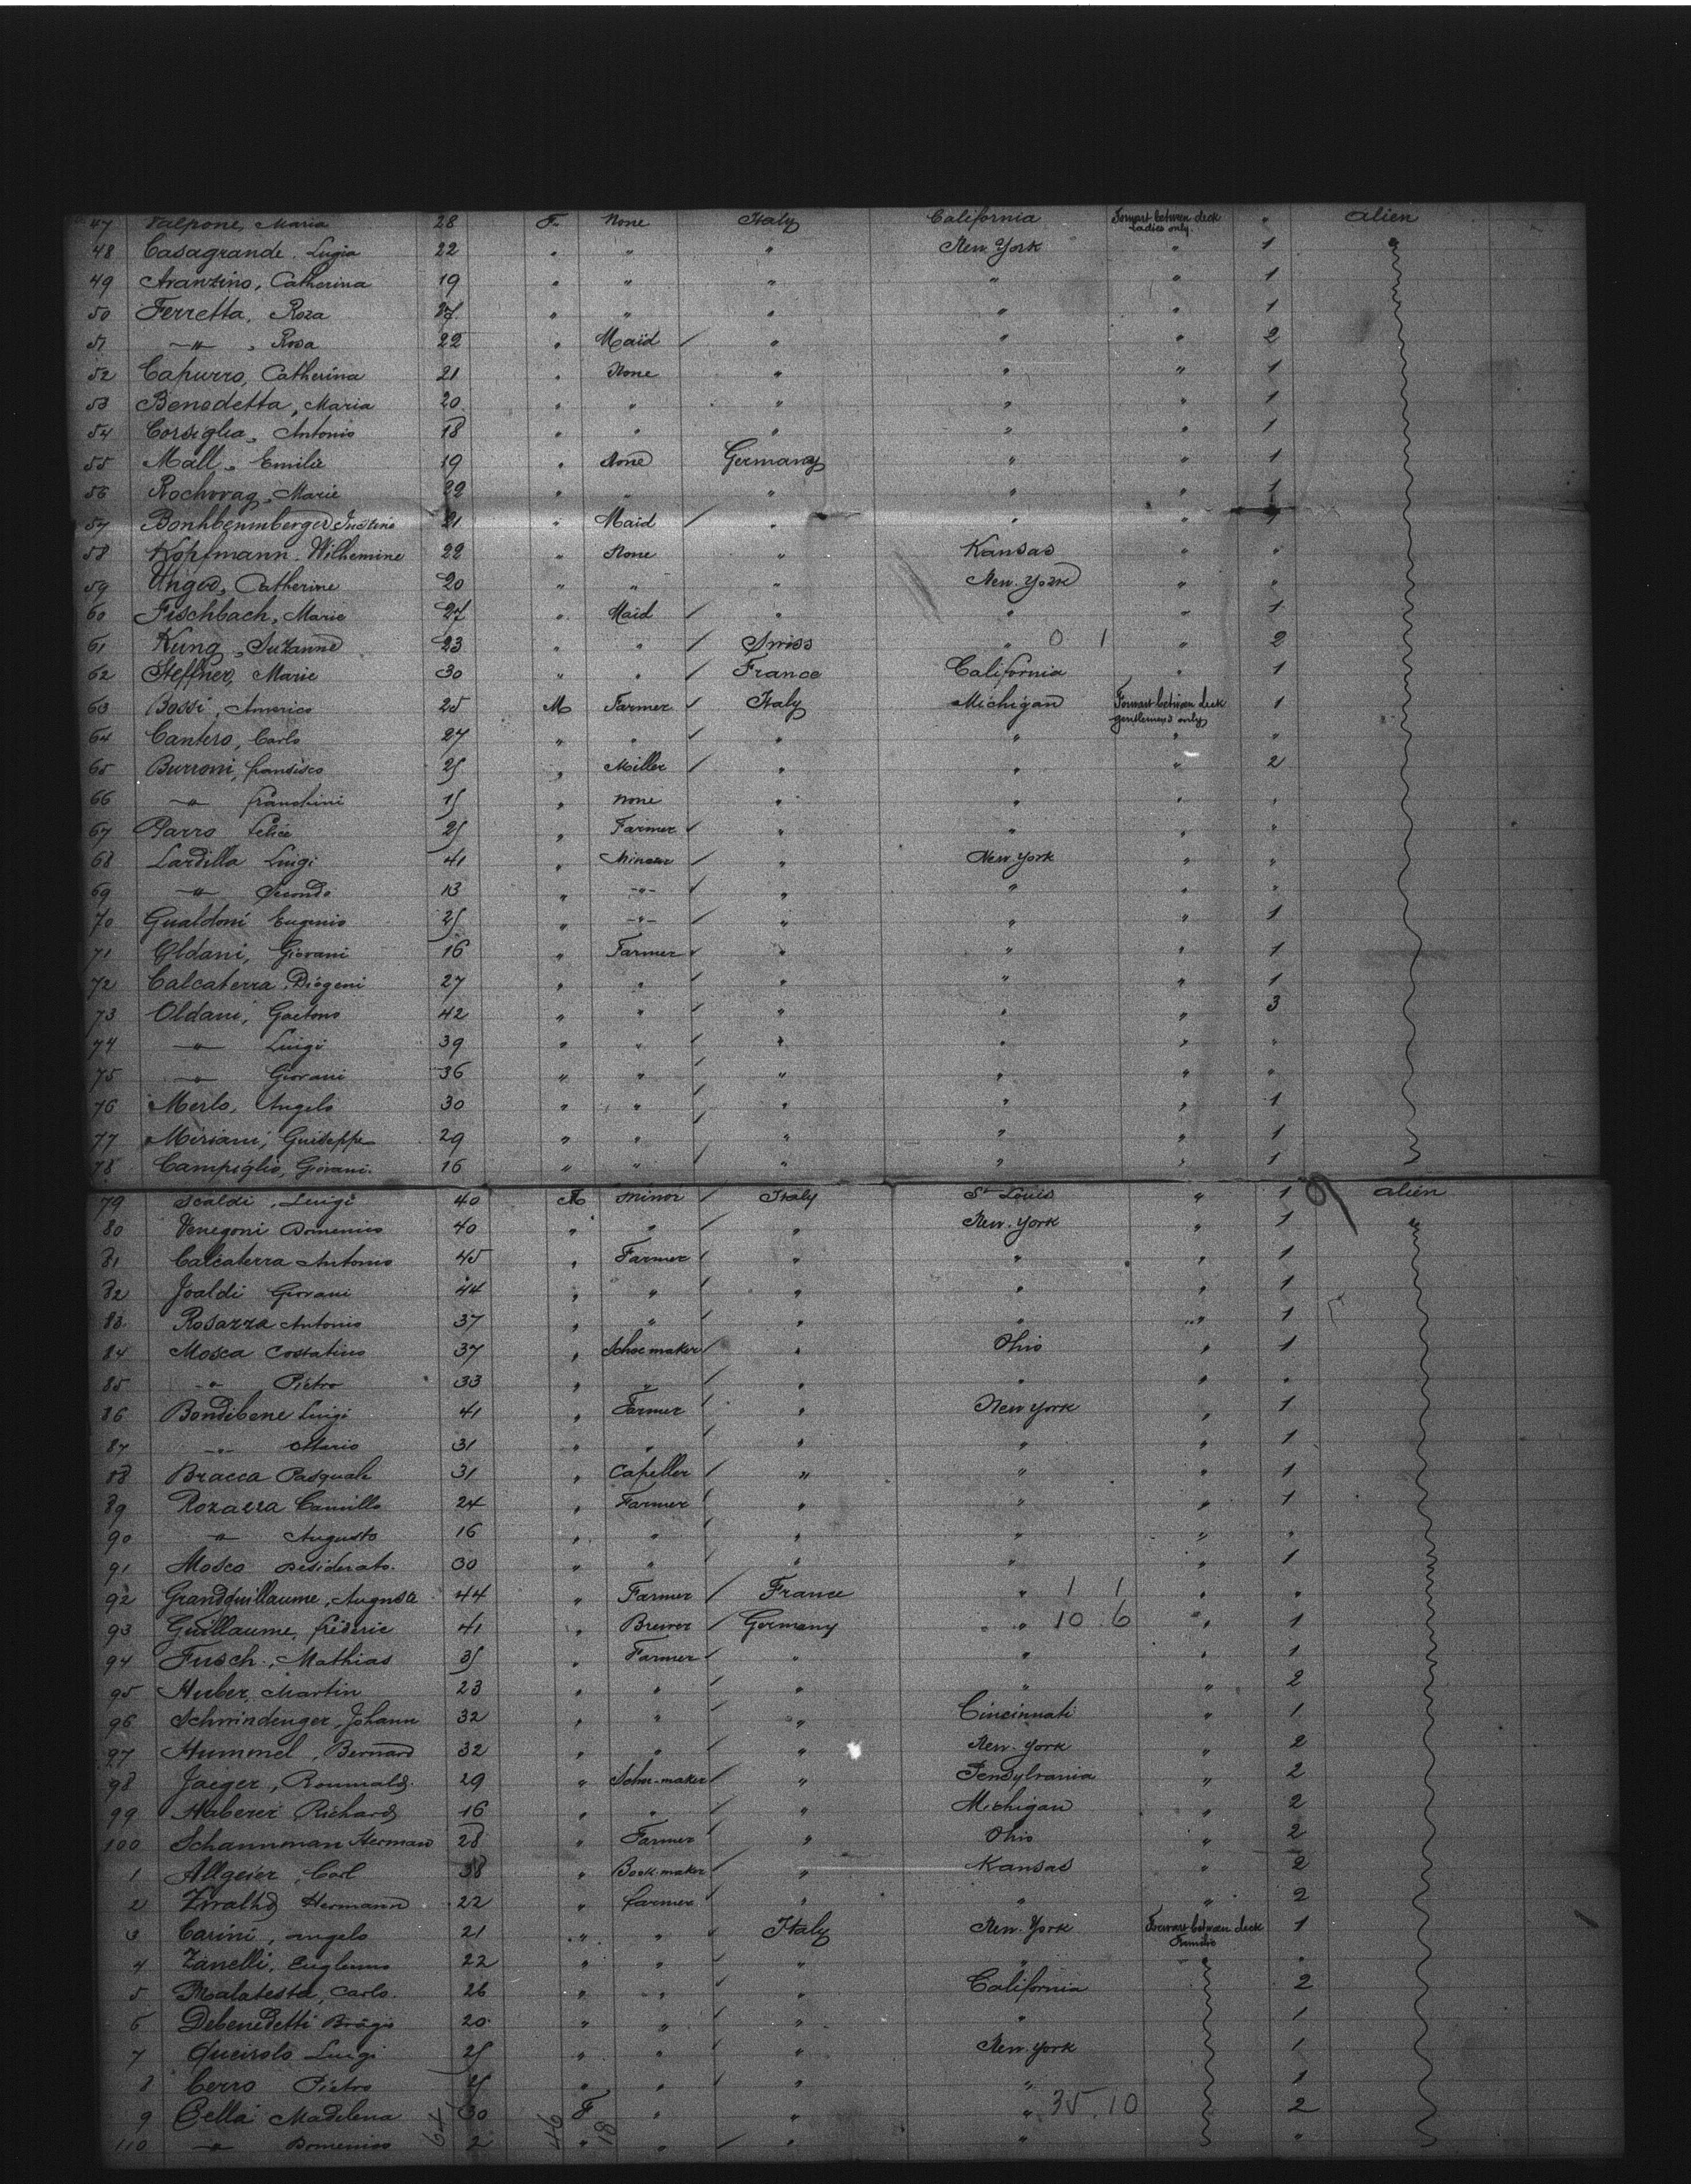 47 Valpone, Maria 28 F. None Italy California Forwart between deck ladies only. " alien
48 Casagrande. Lugia 22 " " " New York " 1
49 Aranzino, Catherina 19 " " " " " 1
50 Ferretta, Roza 27 " " " " " 1
51 " , Rosa 22 " Maid " " " 2
52 Capurro, Catherina 21 " None " " " 1
53 Benedetta, Maria 20 " " " " " 1
54 Corsiglia, Antonio 18 " " " " " 1
55 Mall, Emilie 19 " None Germany " " 1
56 Marie " " " " " 1
57 21 " Maid " " " 1
58 Kopfmann Wilhemine 22 " None " Kansas " "
59 Unger, Catherine 20 " " " New York " "
60 Fischbach, Marie 27 " Maid " " " 1
61 Kung, Suzanne 23 " " Swiss " 0 1 " 2
62 Steffner, Marie 30 " " France California " 1
63 Bossi, Americo 25 M Farmer Italy Michigan Forwart between deck gentlemens only 1
64 Cantero, Carlo 27 " " " " " "
65 Burroni, fransisco 25 " Miller " " " 2
66 " franchini 15 " none " " " "
67 Parro Felice 25 " Farmer " " " "
68 Lardilla Luigi 41 " Minor " New York " "
69 " Secondo 13 " " " " " "
70 Gualdoni Eugenio 25 " " " " " 1
71 Oldani, Giovani 16 " Farmer " " " 1
72 Calcaterra, Diogeni 27 " " " " " 1
73 Oldani, Gaetono 42 " " " " " 3
74 " Luigi 39 " " " " " "
75 " Giovani 36 " " " " " "
76 Merlo, Angelo 30 " " " " " 1
77 Miriani, Guiseppe 29 " " " " " 1
78 Campiglio, Giovani. 16 " " " " " 1
79 Scaldi, Luigi 40 M minor Italy St Louis " 1 alien
80 Venegoni Domenico 40 " " " New York " 1
81 Calcaterra Antonio 45 " Farmer " " " 1
82 Joaldi Giovani 44 " " " " " 1
83 Rosazza Antonio 37 " " " " " 1
84 Mosca Costatino 37 " Schoe maker " Ohio " 1
85 " Pietro 33 " " " " " "
86 Bondibene Luigi 41 " Farmer " New York " 1
87 " Mario 31 " " " " " 1
88 Bracca Pasquale 31 " Capeller " " " 1
89 Camillo 24 " Farmer " " " 1
90 " Augusto 16 " " " " " "
91 Mosco Desiderato. 30 " " " " " 1
92 Grandguillaume, Augusta 44 " Farmer France " 1 1 " "
93 Guillaume, fréderic 41 " Brewer Germany " 10 6 " 1
94 Fusch, Mathias 35 " Farmer " " " 1
95 Huber, Martin 23 " " " " " 2
96 Schwindenger, Johann 32 " " " Cincinnati " 1
97 Hummel, Bernard 32 " " " New York " 2
98 Jaeger, Roumald 29 " Schu-maker " Pensylvania " 2
99 Haberer Richard 16 " " " Michigan " 2
100 Schannman Herman 28 " Farmer " Ohio " 2
1 Allgeier, Carl 38 " Book-maker " Kansas " 2
2 Hermann 22 " farmer " " " 2
3 Carini, angelo 21 " " Italy New York Forwart between deck Familie 1
4 Zanelli, 22 " " " " " "
5 Malatesta, Carlo. 26 " " " California 2
6 Debenedetti 20 " " " " 1
7 Queirolo Luigi 25 " " " New York 1
8 Cerro Pietro 25 " " " " 1
9 Cella Madelena 30 F " " " 35. 10 2
110 " Domenico 2 " " " " "
64 46 18